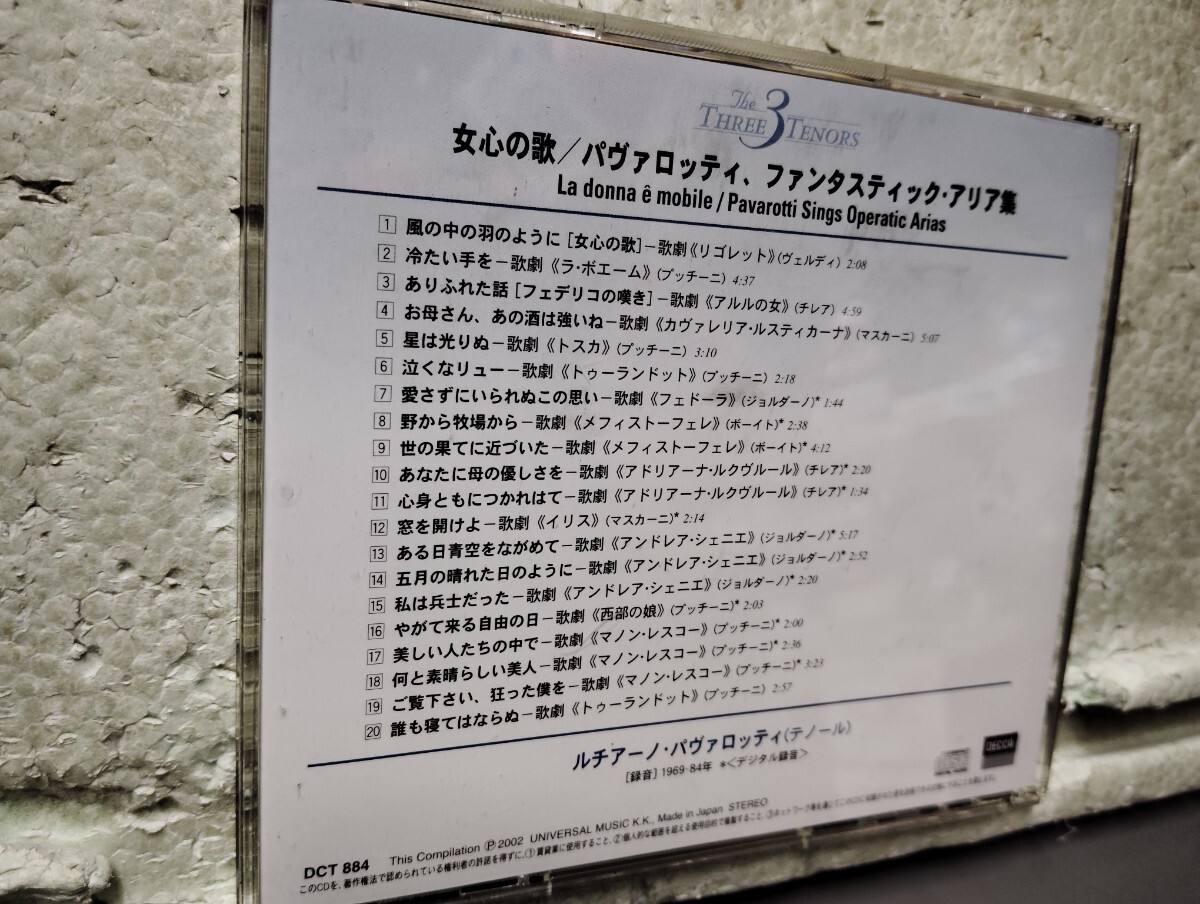 The 3
THREE TENORS
女心の歌/パヴァロッティ、ファンタスティック・アリア集
La donna ê mobile / Pavarotti Sings Operatic Arias
1 風の中の羽のように[女心の歌]-歌劇《リゴレット》(ヴェルディ) 2:08
2 冷たい手を-歌劇《ラ・ボエーム》(プッチーニ) 4:37
3 ありふれた話[フェデリコの嘆き]-歌劇《アルルの女》(チレア) 4:59
4 お母さん、あの酒は強いね-歌劇《カヴァレリア・ルスティカーナ》(マスカーニ) 5:07
5 星は光りぬ-歌劇《トスカ》(プッチーニ) 3:10
6 泣くなリュー-歌劇《トゥーランドット》(プッチーニ) 2:18
7 愛さずにいられぬこの思い-歌劇《フェドーラ》(ジョルダーノ)* 1:44
8 野から牧場から-歌劇《メフィストーフェレ》(ボーイト)* 2:38
9 世の果てに近づいた-歌劇《メフィストーフェレ》(ボーイト)* 4:12
10 あなたに母の優しさを-歌劇《アドリアーナ・ルクヴルール》(チレア)* 2:20
11 心身ともにつかれはて-歌劇《アドリアーナ・ルクヴルール》(チレア)* 1:34
12 窓を開けよ-歌劇《イリス》(マスカーニ)* 2:14
13 ある日青空をながめて-歌劇《アンドレア・シェニエ》(ジョルダーノ)* 5:17
14 五月の晴れた日のように-歌劇《アンドレア・シェニエ》(ジョルダーノ)* 2:52
15 私は兵士だった-歌劇《アンドレア・シェニエ》(ジョルダーノ)* 2:20
16 やがて来る自由の日-歌劇《西部の娘》(プッチーニ)* 2:03
17 美しい人たちの中で-歌劇《マノン・レスコー》(プッチーニ)* 2:00
18 何と素晴らしい美人-歌劇《マノン・レスコー》(プッチーニ)* 2:36
19 ご覧下さい、狂った僕を-歌劇《マノン・レスコー》(プッチーニ)* 3:23
20 誰も寝てはならぬ-歌劇《トゥーランドット》(プッチーニ) 2:57
ルチアーノ・パヴァロッティ(テノール)
[録音] 1969-84年 *<デジタル録音>
DECCA
DCT 884 This Compilation ℗ 2002 UNIVERSAL MUSIC K.K., Made in Japan STEREO
このCDを、著作権法で認められている権利者の許諾を得ずに、①賃貸業に使用すること、②個人的な範囲を超える使用目的で複製すること、③ネットワーク等を通じてこのCDに収録された音を送信できる状態にすることを禁じます。